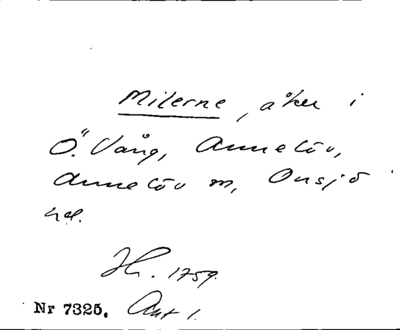 Milerne, åker i
Ö. Vång, Annelöv,
Annelöv sn, Onsjö
hd.
Hl. 1759.
Nr 7325. Akt 1.